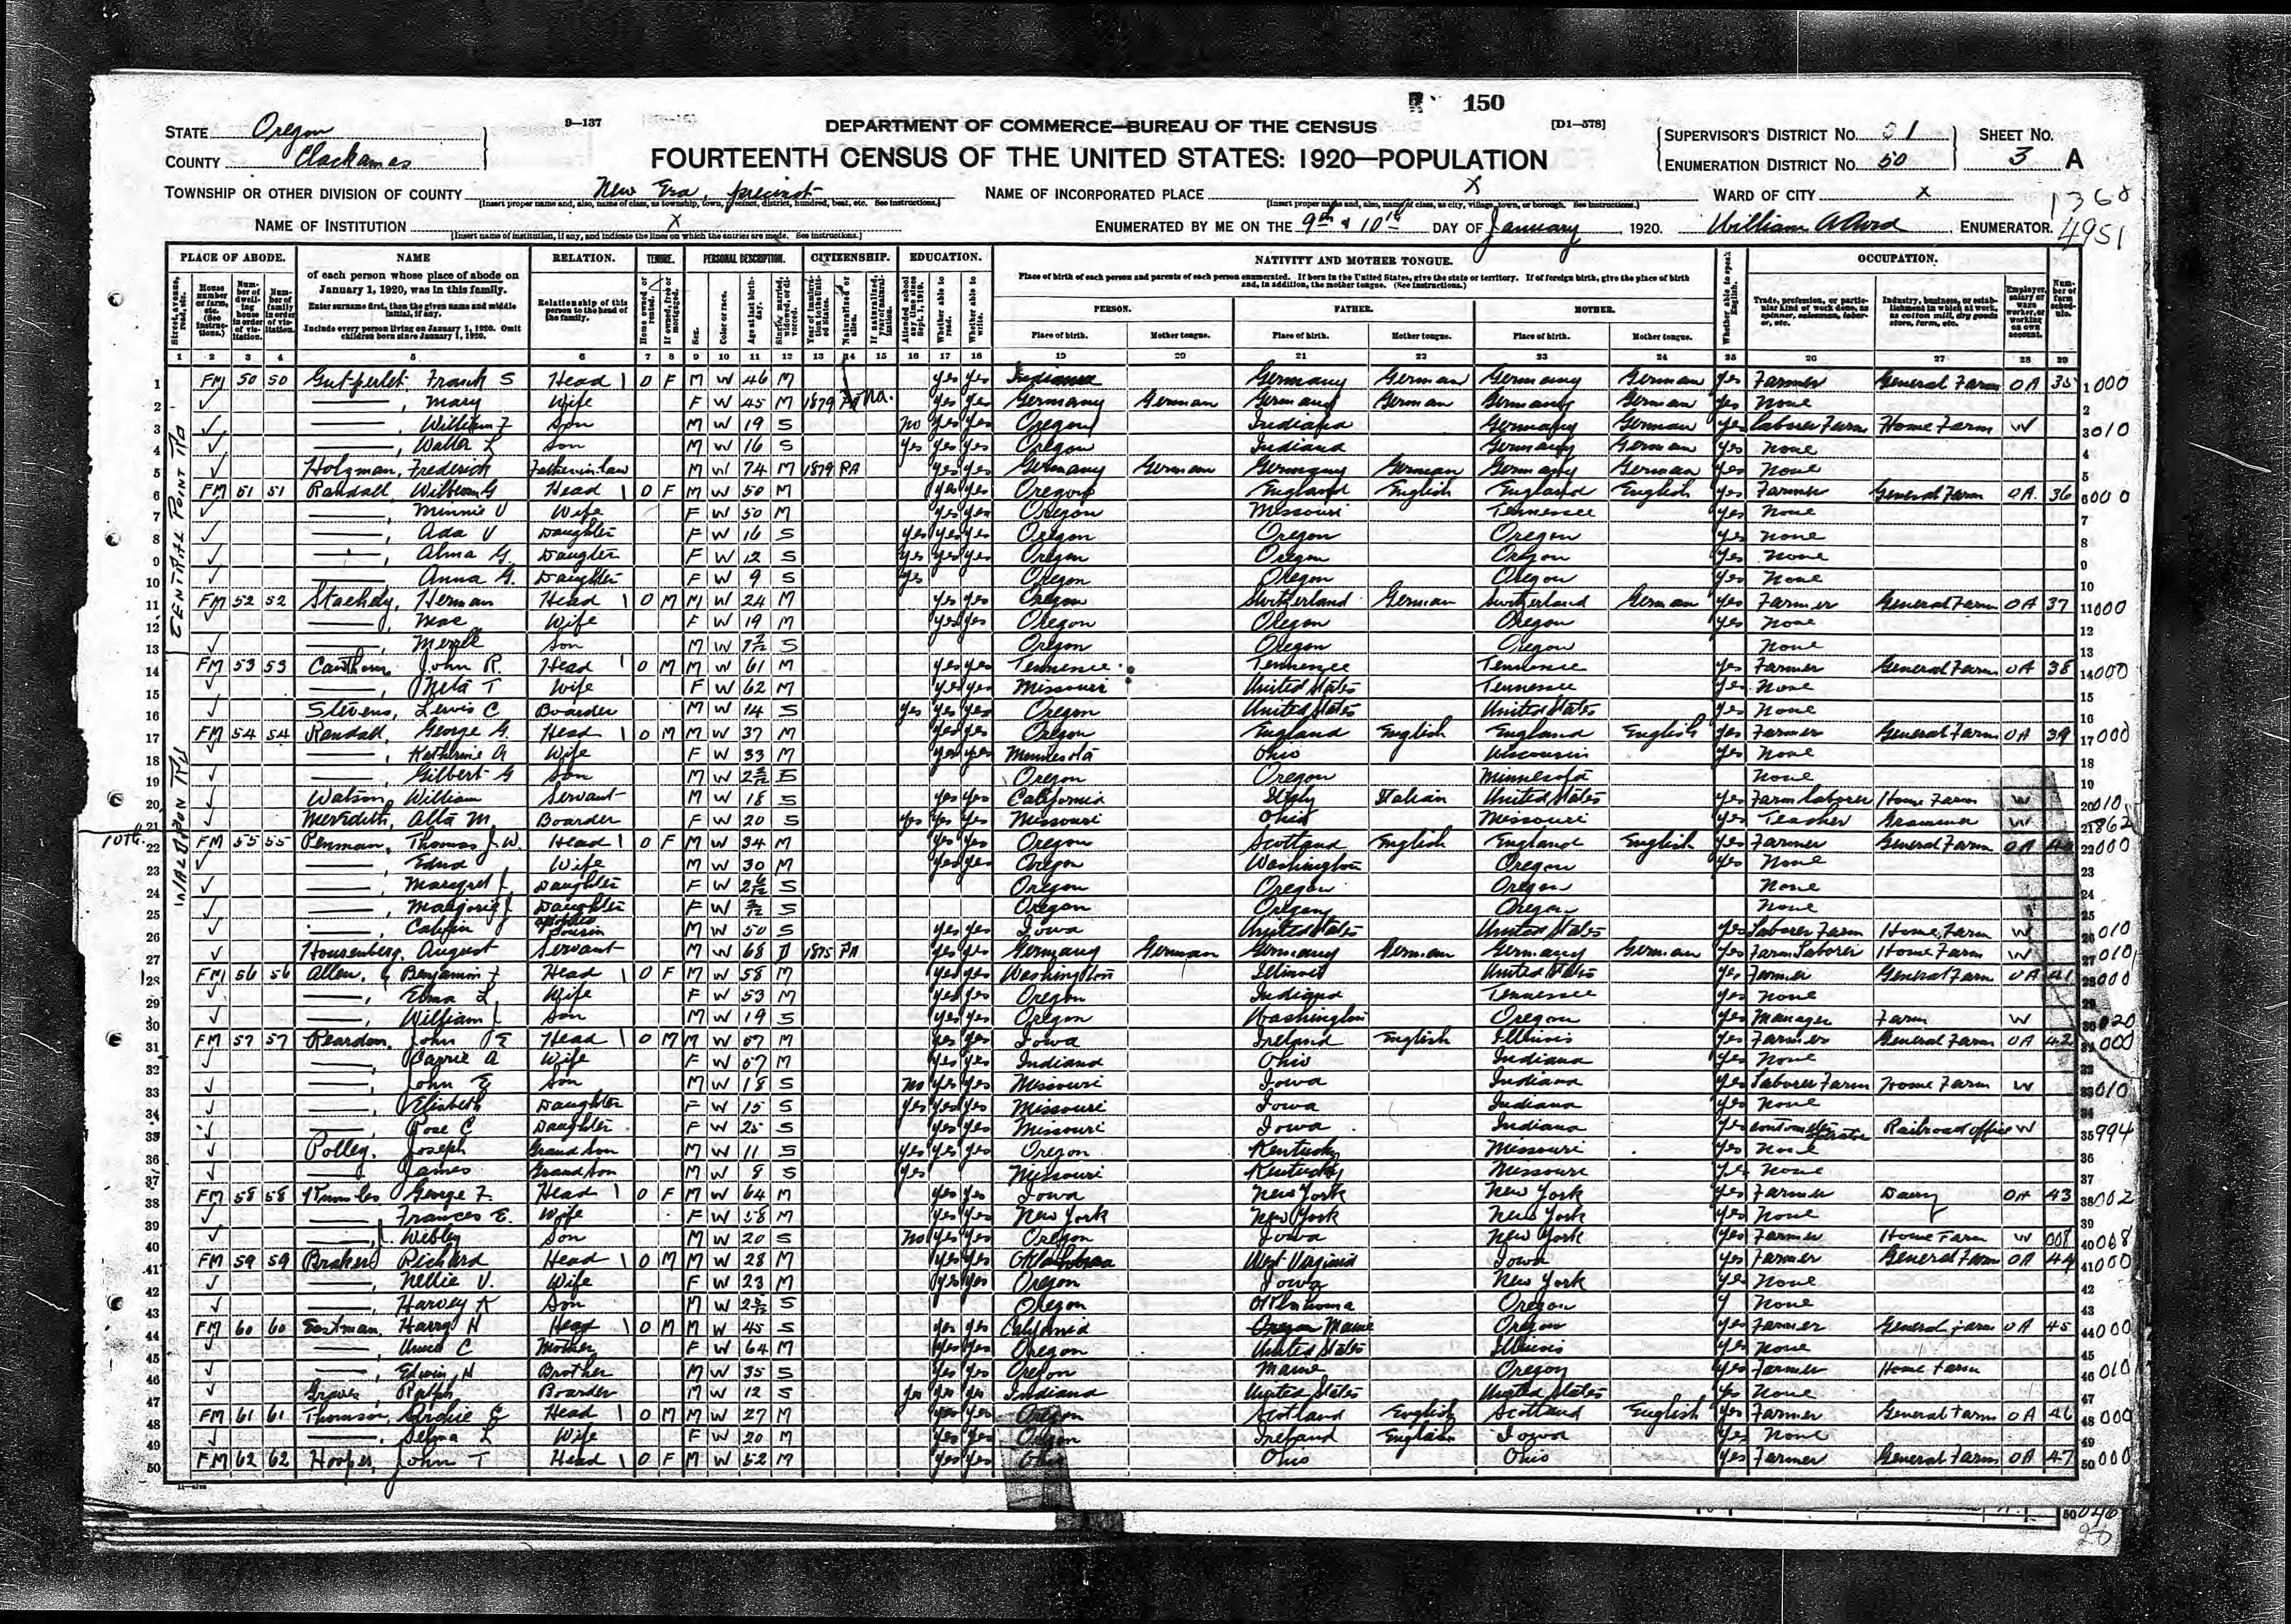 150
STATE Oregon
COUNTY Clackamas
9—137
DEPARTMENT OF COMMERCE—BUREAU OF THE CENSUS
[D1—578]
FOURTEENTH CENSUS OF THE UNITED STATES: 1920—POPULATION
SUPERVISOR'S DISTRICT NO. 1
ENUMERATION DISTRICT NO. 50
SHEET NO. 3 A
TOWNSHIP OR OTHER DIVISION OF COUNTY New Era, precinct
NAME OF INCORPORATED PLACE X
WARD OF CITY X
1368
4951
NAME OF INSTITUTION X
ENUMERATED BY ME ON THE 9th & 10th DAY OF January, 1920. William ENUMERATOR.
PLACE OF ABODE. NAME RELATION. TENURE. PERSONAL DESCRIPTION. CITIZENSHIP. EDUCATION. NATIVITY AND MOTHER TONGUE. OCCUPATION.
of each person whose place of abode on January 1, 1920, was in this family.
Enter surname first, then the given name and middle initial, if any.
Include every person living on January 1, 1920. Omit children born since January 1, 1920.
Relationship of this person to the head of the family.
Place of birth of each person and parents of each person enumerated. If born in the United States, give the state or territory. If of foreign birth, give the place of birth and, in addition, the mother tongue. (See instructions.)
PERSON. FATHER. MOTHER.
Place of birth. Mother tongue. Place of birth. Mother tongue. Place of birth. Mother tongue.
1 2 3 4 5 6 7 8 9 10 11 12 13 14 15 16 17 18 19 20 21 22 23 24 25 26 27 28 29
CENTRAL POINT RD
1 FM 50 50 Gutperlet, Frank S Head 1 O F M W 46 M yes yes Indiana Germany German Germany German yes Farmer General Farm OA 35 1000
2 ——, Mary Wife F W 45 M 1879 Na. yes yes Germany German Germany German Germany German yes None
3 ——, William F Son M W 19 S no yes yes Oregon Indiana Germany German yes Laborer Farm Home Farm W 3010
4 ——, Walter L Son M W 16 S yes yes yes Oregon Indiana Germany German yes None
5 Holzman, Frederich Father in law M W 74 M 1879 PA yes yes Germany German Germany German Germany German yes None
6 FM 51 51 Randall, William G Head 1 O F M W 50 M yes yes Oregon England English England English yes Farmer General Farm OA 36 6000
7 ——, Minnie V Wife F W 50 M yes yes Oregon Missouri Tennessee yes None
8 ——, Ada V Daughter F W 16 S yes yes yes Oregon Oregon Oregon yes none
9 ——, Alma G. Daugter F W 12 S yes yes yes Oregon Oregon Oregon yes none
10 ——, Anna G. Daughter F W 9 S yes Oregon Oregon Oregon yes None
11 FM 52 52 Staehely, Herman Head 1 O M M W 24 M yes yes Oregon Switzerland German Switzerland German yes Farmer General Farm OA 37 11000
12 ——, Mae Wife F W 19 M yes yes Oregon Oregon Oregon yes None
13 ——, Merrle Son M W S Oregon Oregon Oregon None
14 FM 53 53 John R. Head 1 O M M W 61 M yes yes Tennessee Tennessee Tennessee yes Farmer General Farm OA 38 14000
15 ——, Neta T Wife F W 62 M yes yes Missouri United States Tennessee yes None
16 Stevens, Lewis C Boarder M W 14 S yes yes yes Oregon United States United States yes None
WALDRON RD
17 FM 54 54 Randall, George G. Head 1 O M M W 37 M yes yes Oregon England English England English yes Farmer General Farm OA 39 17000
18 ——, Katherine A Wife F W 33 M yes yes Minnesota Ohio Wisconsin yes None
19 ——, Gilbert G Son M W S Oregon Oregon Minnesota None
20 Watson, William Servant M W 18 S yes yes California Italy Italian United States yes Farm laborer Home Farm W 20010
21 Meredith, Alta M. Boarder F W 20 S yes yes yes Missouri Ohio Missouri yes Teacher Grammar W 21862
10th
22 FM 55 55 Penman, Thomas J. W. Head 1 O F M W 34 M yes yes Oregon Scotland English England English yes Farmer General Farm OA 40 22000
23 ——, Edna Wife F W 30 M yes yes Oregon Washington Oregon yes None
24 ——, Margret J. Daughter F W S Oregon Oregon Oregon None
25 ——, Marjorie J. Daughter F W S Oregon Oregon Oregon None
26 ——, Calvin Cousin M W 50 S yes yes Iowa United States United States yes Laborer Farm Home Farm W 26010
27 Housenberg, August Servant M W 68 D 1875 PA yes yes Germany German Germany German Germany German yes Farm Laborer Home Farm W 27010
28 FM 56 56 Allen, Benjamin F Head 1 O F M W 58 M yes yes Washington Illinois United States yes Farmer General Farm OA 41 28000
29 ——, Elma L. Wife F W 53 M yes yes Oregon Indiana Tennessee yes None
30 ——, William J. Son M W 19 S yes yes Oregon Washington Oregon yes Manager Farm W 30020
31 FM 57 57 Reardon, John E Head 1 O M M W 57 M yes yes Iowa Ireland English Illinois yes Farmer General Farm OA 42 31000
32 ——, Carrie A Wife F W 57 M yes yes Indiana Ohio Indiana yes None
33 ——, John E Son M W 18 S no yes yes Missouri Iowa Indiana yes Laborer Farm Home Farm W 33010
34 ——, Elisbeth Daughter F W 15 S yes yes yes Missouri Iowa Indiana yes None
35 ——, Rose C Daughter F W 25 S yes yes Missouri Iowa Indiana yes Railroad office W 35994
36 Polley, Joseph Grand Son M W 11 S yes yes yes Oregon Kentucky Missouri yes None
37 ——, James Grand Son M W 8 S yes Missouri Kentucky Missouri yes None
38 FM 58 58 George F. Head 1 O F M W 64 M yes yes Iowa New York New York yes Farmer Dairy OA 43 38002
39 ——, Frances E. Wife F W 58 M yes yes New York New York New York yes None
40 ——, J. Webley Son M W 20 S no yes yes Oregon Iowa New York yes Farmer Home Farm W 40068
41 FM 59 59 Braker, Richard Head 1 O M M W 28 M yes yes Oklahoma West Virginia Iowa yes Farmer General Farm OA 44 41000
42 ——, Nellie V. Wife F W 23 M yes yes Oregon Iowa New York yes None
43 ——, Harvey K Son M W S Oregon Oklahoma Oregon y None
44 FM 60 60 Eastman, Harry H Head 1 O M M W 45 S yes yes California Oregon Maine Oregon yes Farmer General Farm OA 45 44000
45 ——, Anna C Mother F W 64 M yes yes Oregon United States Illinois yes None
46 ——, Edwin H Brother M W 35 S yes yes Oregon Maine Oregon yes Farmer Home Farm 46010
47 Graves, Ralph Boarder M W 12 S yes yes yes Indiana United States United States yes None
48 FM 61 61 Thomson, Archie G Head 1 O M M W 27 M yes yes Oregon Scotland English Scotland English yes Farmer General Farm OA 46 48000
49 ——, Selma L Wife F W 20 M yes yes Oregon Ireland English Iowa yes None
50 FM 62 62 Hooper, John T Head 1 O F M W 52 M yes yes Ohio Ohio Ohio yes Farmer General Farm OA 47 50000
50 040
20